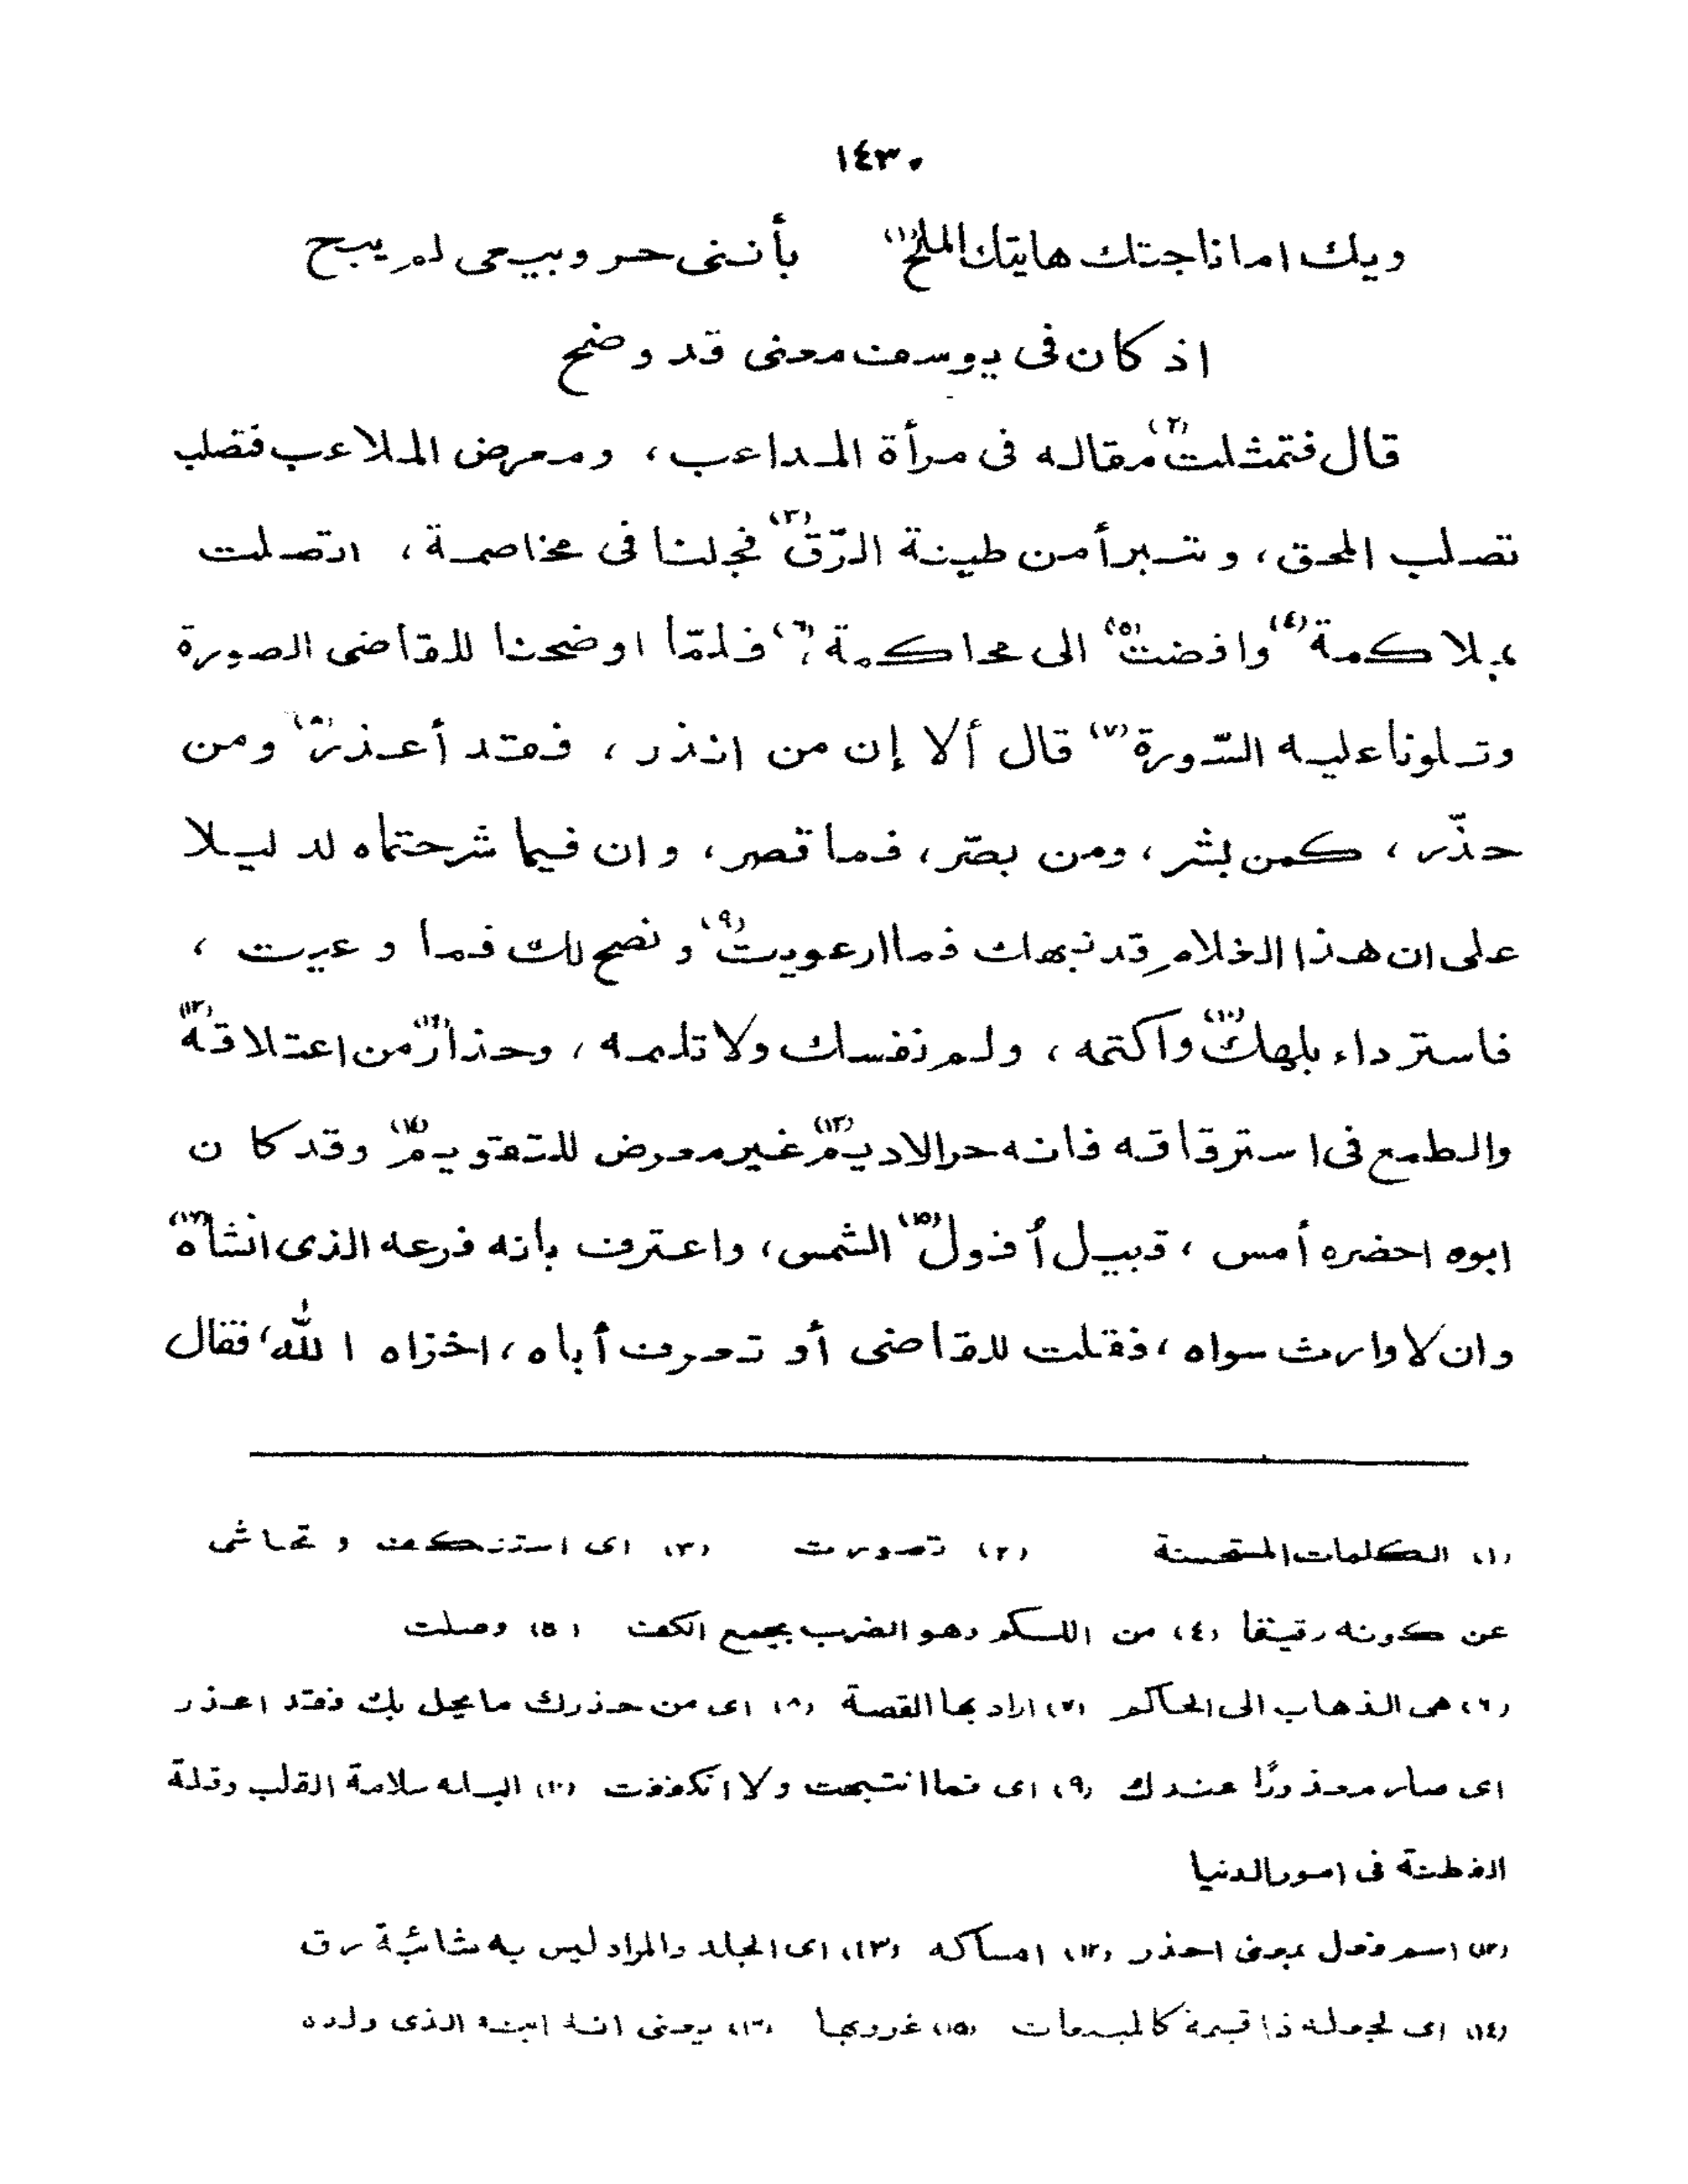 ١٤٣٠
ويك اما ناجتك هاتيك الملح (١) بأننى حر وبيعى لم يبح
اذ كان فى يوسف معنى قد وضح
قال فتمثلت (٢) مقاله فى مرأة المداعب ، ومعرض الملاعب فتصلب
تصلب المحق ، وتبرأ من طينة الرّق (٣) فجلنا فى مخاصمة ، اتصلت
بملاكمة (٤) وافضت (٥) الى محاكمة ، (٦) فلمّا اوضحنا للقاضى الصورة
وتلونا عليه السّورة (٧) قال ألا إن من انذر ، فقد أعذر (٨) ومن
حذّر ، كمن بشر ، ومن بصّر ، فما قصر ، وان فيما شرحتماه لدليلا
على ان هذا الغلام قد نبهك فما ارعويت (٩) ونصح لك فما وعيت ،
فاستر داء بلهك (١٠) واكتمه ، ولم نفسك ولا تلمه ، وحذار (١١) من اعتلاقه (١٢)
والطمع فى استرقاقه فانه حر الاديم (١٣) غير معرض للتقويم (١٤) وقد كان
ابوه احضره أمس ، قبيل أفول (١٥) الشمس ، واعترف بانه فرعه الذى انشأه (١٦)
وان لا وارث سواه ، فقلت للقاضى أو تعرف أباه ، اخزاه الله ، فقال
(١) الكلمات المستحسنة (٢) تصورت (٣) اى استنكف وتحاشى
عن كونه رقيقا (٤) من اللكم وهو الضرب بجمع الكف (٥) وصلت
(٦) هى الذهاب الى الحاكم (٧) اراد بها القصة (٨) اى من حذرك ما يحل بك فقد اعذر
اى صار معذورًا عندك (٩) اى فما انتبهت ولا انكففت (١٠) البله سلامة القلب وقلة
الفطنة فى امور الدنيا
(١٢) اسم فعل بمعنى احذر (١٢) امساكه (١٣) اى الجلد والمراد ليس به شائبة رق
(١٤) اى لجعله ذا قيمة كالمبيعات (١٥) غروبها (١٦) يعنى انه ابنه الذى ولده